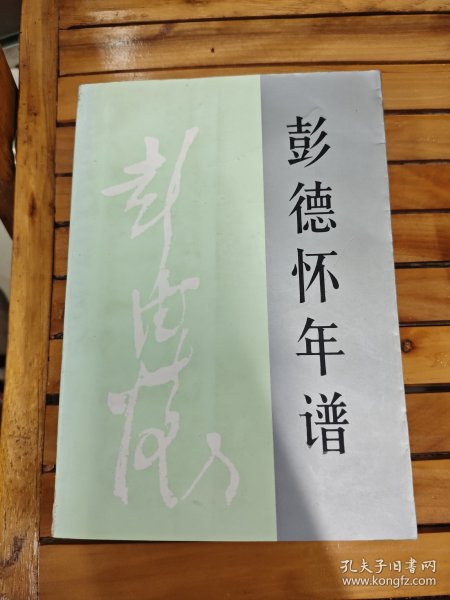 彭德怀年谱
彭德怀
孔夫子旧书网
www.kongfz.com